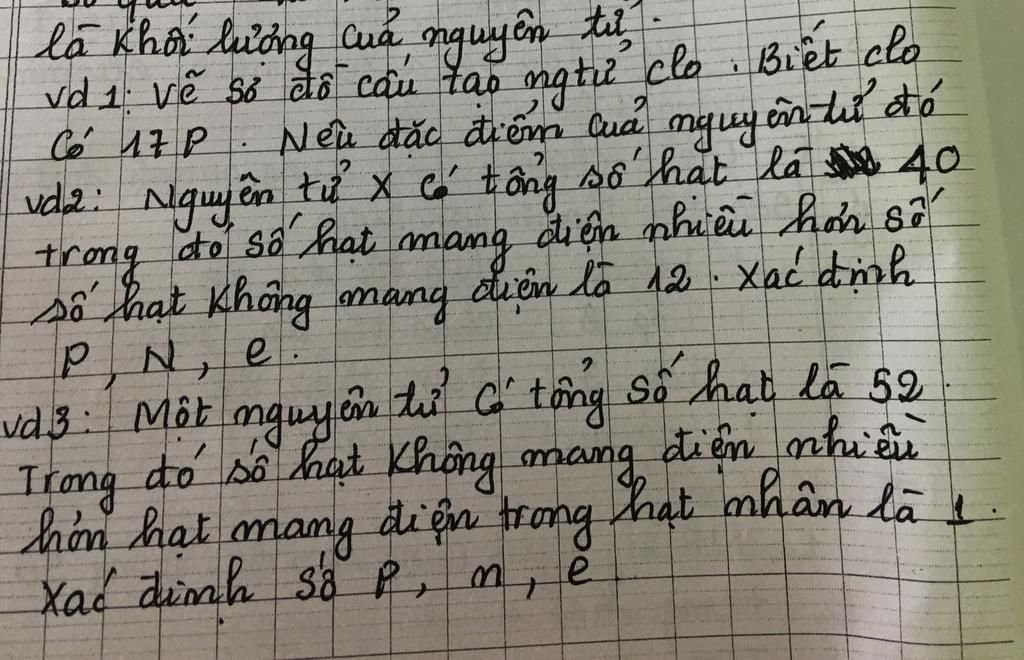 là khối lượng của nguyên tử.
vd 1: Vẽ sơ đồ cấu tạo ngtử clo. Biết clo
Có 17 P. Nêu đặc điểm của nguyên tử đó
vd2: Nguyên tử X có tổng số hạt là 40
trong đó số hạt mang điện nhiều hơn số
số hạt không mang điện là 12. Xác định
P, N, e.
vd3: Một nguyên tử có tổng số hạt là 52
Trong đó số hạt không mang điện nhiều
hơn hạt mang điện trong hạt nhân là 1.
Xác định số P, n, e